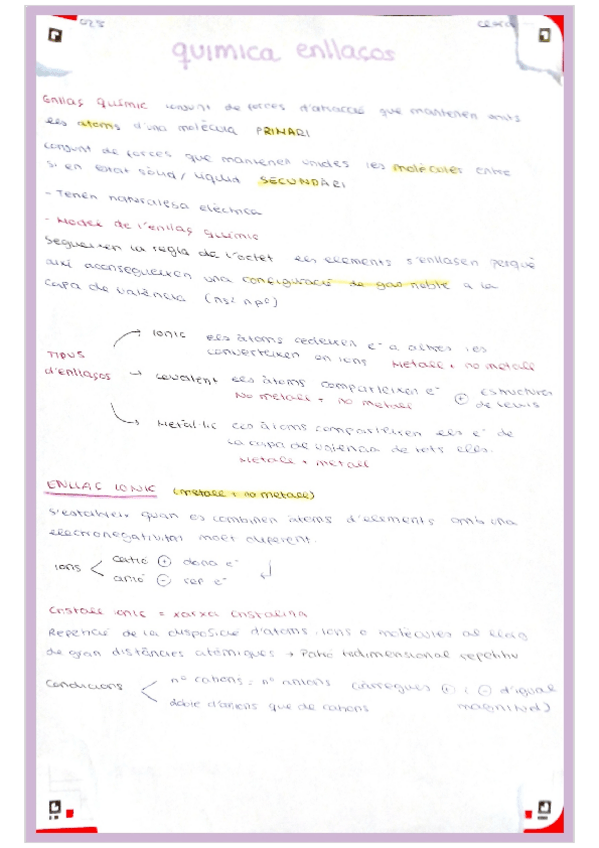 química enllaços
Enllaç químic conjunt de forces d'atracció que mantenen units
els àtoms d'una molècula PRIMARI
conjunt de forces que mantenen unides les molècules entre
si en estat sòlid / líquid SECUNDARI
- Tenen naturalesa elèctrica
- Model de l'enllaç químic
segueixen la regla de l'octet els elements s'enllaçen perquè
així aconsegueixen una configuració de gas noble a la
capa de valència (ns² np⁶)
→ Iònic els àtoms cedeixen e⁻ a altres i es
converteixen en ions Metall + no metall
TIPUS
d'enllaços → covalent els àtoms comparteixen e⁻ + estructures
No metall + no metall de Lewis
→ Metàl·lic els àtoms comparteixen els e⁻ de
la capa de valència de tots ells.
Metall + metall
ENLLAÇ IÒNIC (metall + no metall)
s'estableix quan es combinen àtoms d'elements amb una
electronegativitat molt diferent.
ions < catió + dona e⁻
anió - rep e⁻
Cristall iònic = xarxa cristalina
Repetició de la disposició d'àtoms, ions o molècules al llarg
de gran distàncies atòmiques → Patró tridimensional repetitiu
Condicions < nº cations = nº anions (càrregues + i - d'igual
magnitud)
doble d'anions que de cations